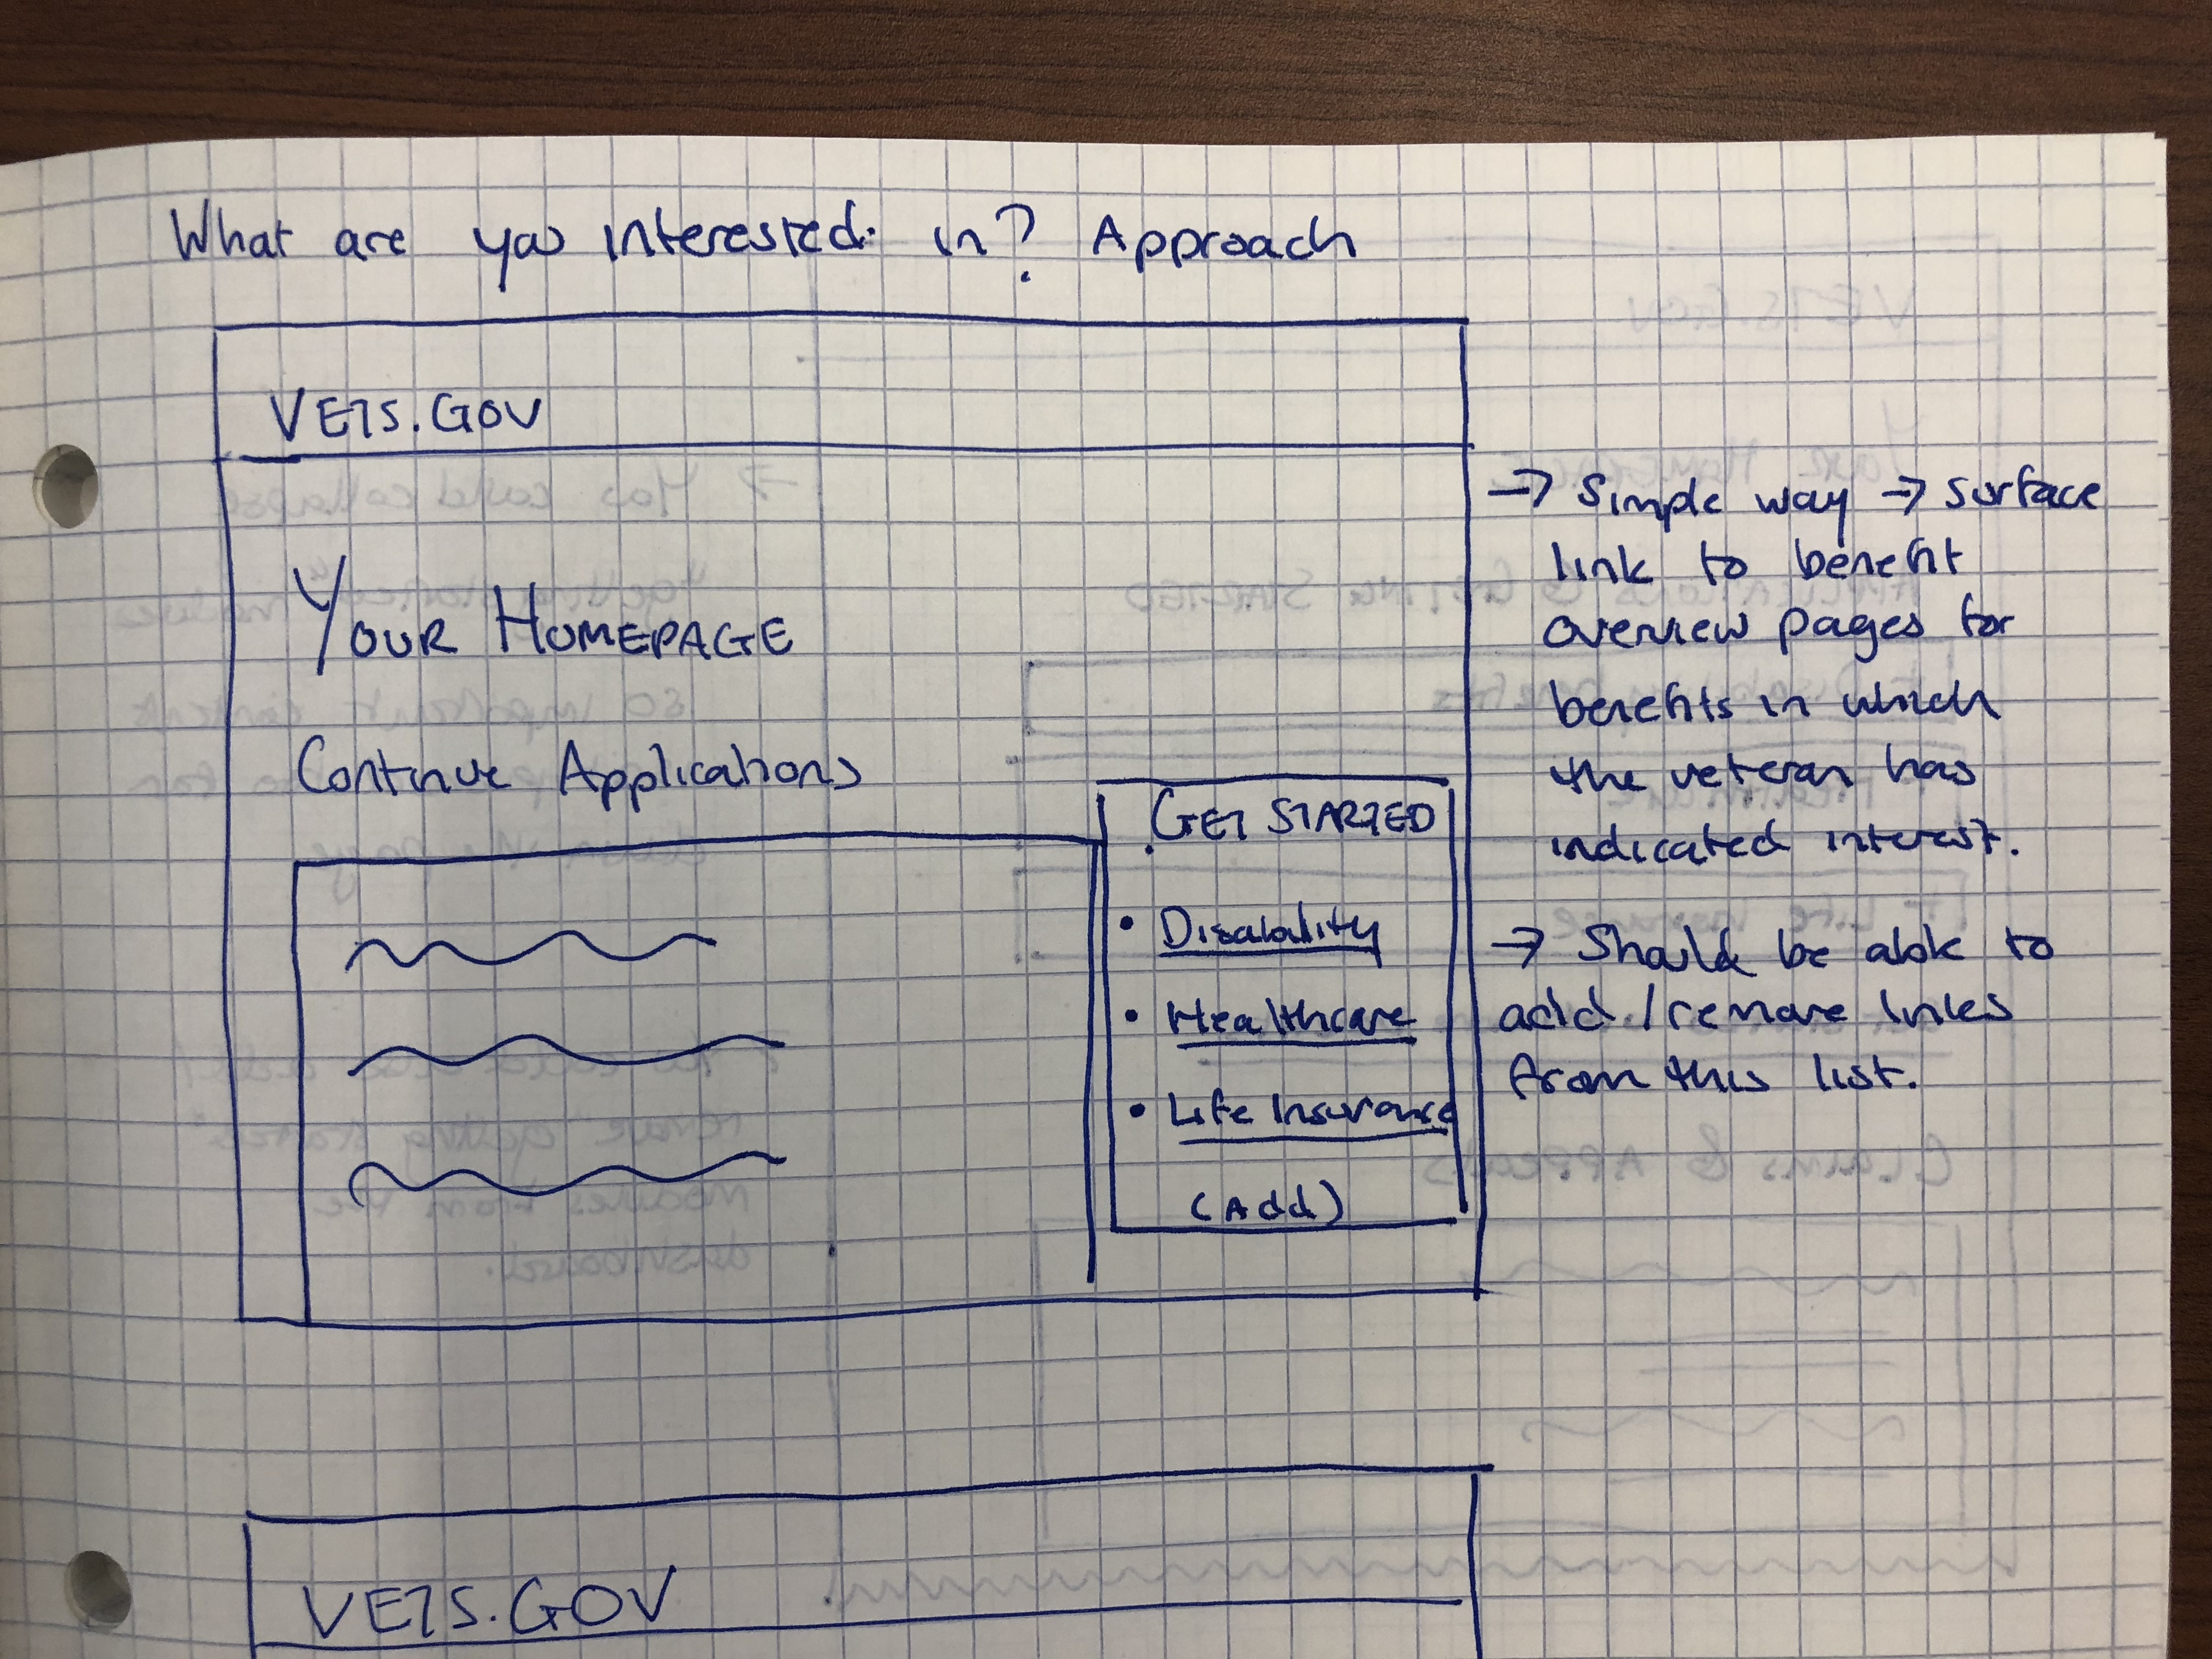 What are you interested in? Approach
VETS.GOV
YOUR HOMEPAGE
Continue Applications
GET STARTED
• Disability
• Healthcare
• Life Insurance
(Add)
→ Simple way → surface
link to benefit
overview pages for
benefits in which
the veteran has
indicated interest.
→ Should be able to
add/remove links
from this list.
VETS.GOV